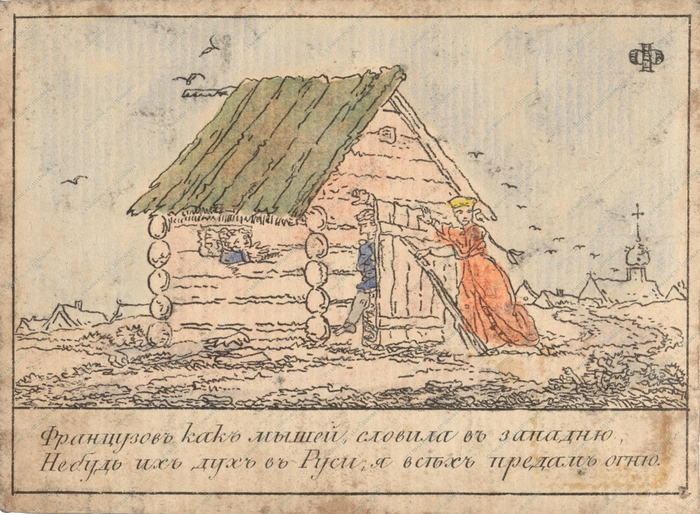 Ф
Французовъ какъ мышей, словила въ западню,
Небудь ихъ духъ въ Руси, я всѣхъ предамъ огню.